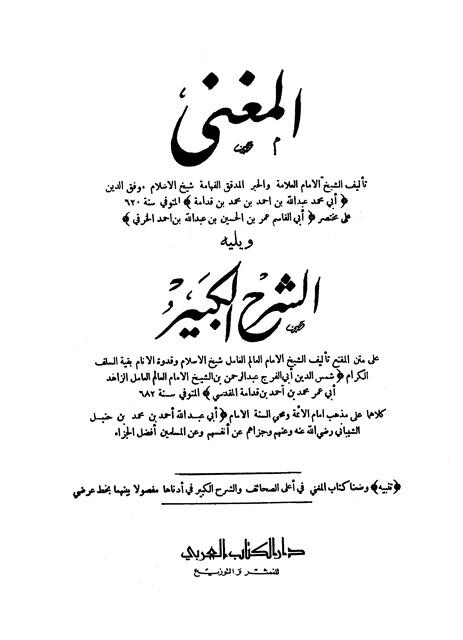 المغني
تأليف الشيخ الامام العلامة والحبر المدقق الفهامة شيخ الاسلام موفق الدين
﴿ أبي محمد عبدالله بن احمد بن محمد بن قدامة ﴾ المتوفي سنة ٦٢٠
على مختصر ﴿ أبي القاسم عمر بن الحسين بن عبدالله بن احمد الخرقي ﴾
ويليه
الشرح الكبير
على متن المقنع تأليف الشيخ الامام العالم العامل شيخ الاسلام وقدوة الانام بقية السلف
الكرام ﴿ شمس الدين أبي الفرج عبدالرحمن بن الشيخ الامام العالم العامل الزاهد
أبي عمر محمد بن أحمد بن قدامة المقدسي ﴾ المتوفي سنة ٦٨٢
كلاهما على مذهب امام الائمة ومحيي السنة الامام ﴿ أبي عبدالله أحمد بن محمد بن حنبل
الشيباني رضي الله عنه وعنهم وجزاهم عن أنفسهم وعن المسلمين أفضل الجزاء
﴿ تنبيه ﴾ وضعنا كتاب المغني في أعلى الصحائف والشرح الكبير في أدناها مفصولا بينهما بخط عرضي
دار الكتاب العربي
للنشر و التوزيع